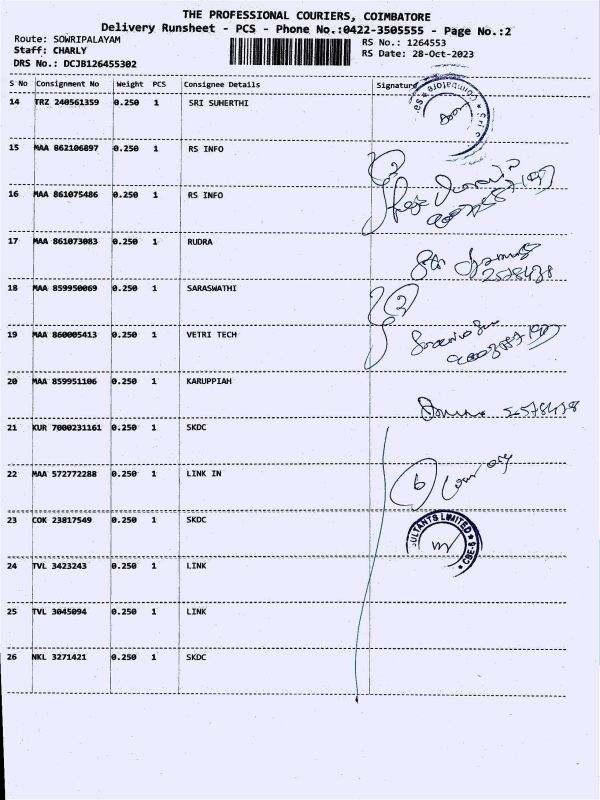 THE PROFESSIONAL COURIERS, COIMBATORE
Delivery Runsheet - PCS - Phone No.:0422-3505555 - Page No.:2
Route: SOWRIPALAYAM RS No.: 1264553
Staff: CHARLY RS Date: 28-Oct-2023
DRS No.: DCJB126455302
S No Consignment No Weight PCS Consignee Details Signature
14 TRZ 240561359 0.250 1 SRI SUHERTHI
15 MAA 862106897 0.250 1 RS INFO
16 MAA 861075486 0.250 1 RS INFO
17 MAA 861073083 0.250 1 RUDRA
2578478
18 MAA 859950069 0.250 1 SARASWATHI
2
19 MAA 860005413 0.250 1 VETRI TECH
20 MAA 859951106 0.250 1 KARUPPIAH
2578478
21 KUR 7000231161 0.250 1 SKDC
22 MAA 572772288 0.250 1 LINK IN
6
23 COK 23817549 0.250 1 SKDC
ULTANTS LIMITED * CBE-6 *
24 TVL 3423243 0.250 1 LINK
25 TVL 3045094 0.250 1 LINK
26 NKL 3271421 0.250 1 SKDC